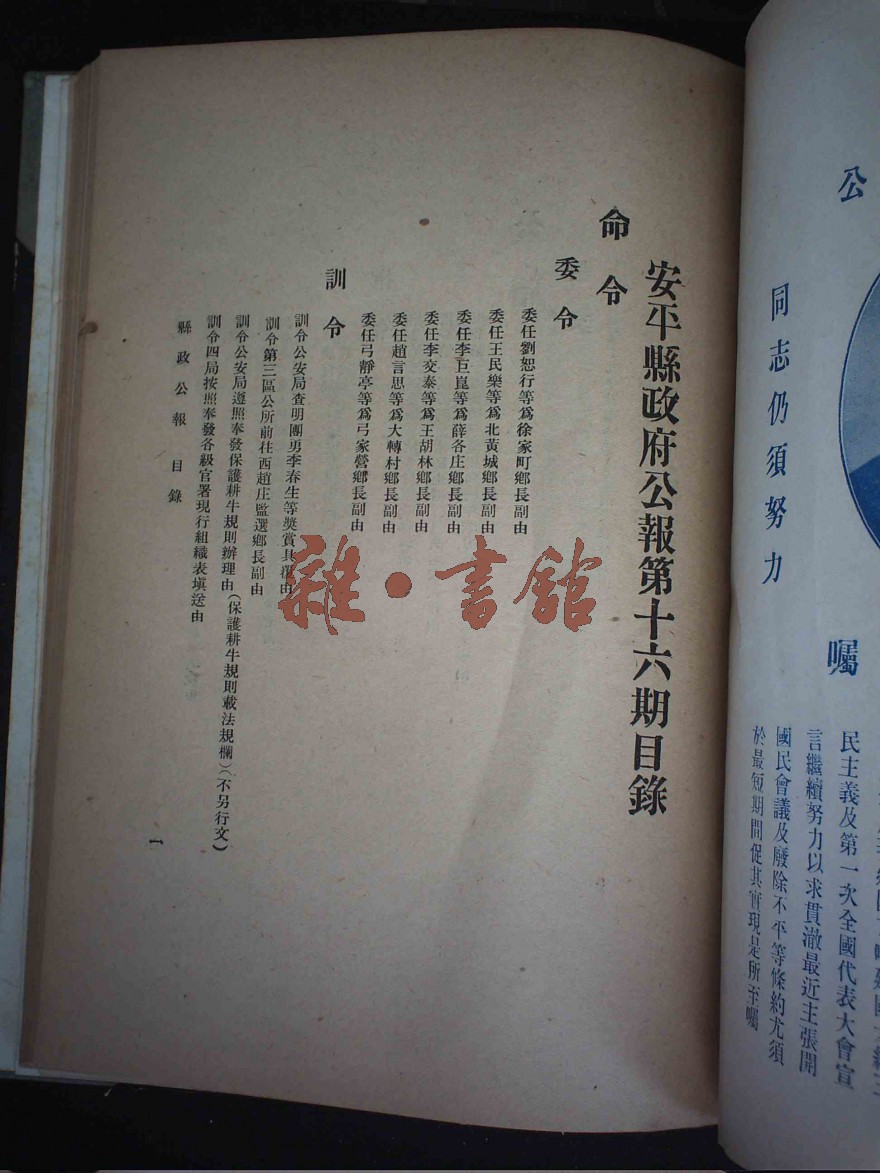 公
同志仍須努力
囑
民主義及第一次全國代表大會宣
言繼續努力以求貫澈最近主張開
國民會議及廢除不平等條約尤須
於最短期間促其實現是所至囑
安平縣政府公報第十六期目錄
命令
委令
委任劉恕行等爲徐家町鄉長副由
委任王民樂等爲北黃城鄉長副由
委任李巨崑等爲薛各庄鄉長副由
委任李交泰等爲王胡林鄉長副由
委任趙言思等爲大轉村鄉長副由
委任弓靜亭等爲弓家營鄉長副由
訓令
訓令公安局查明團勇李春生等獎賞具領由
訓令第三區公所前往西趙庄監選鄉長副由
訓令公安局遵照奉發保護耕牛規則辦理由(保護耕牛規則載法規欄)(不另行文)
訓令四局按照奉發各級官署現行組織表塡送由
縣政公報 目錄
一
雜·書館